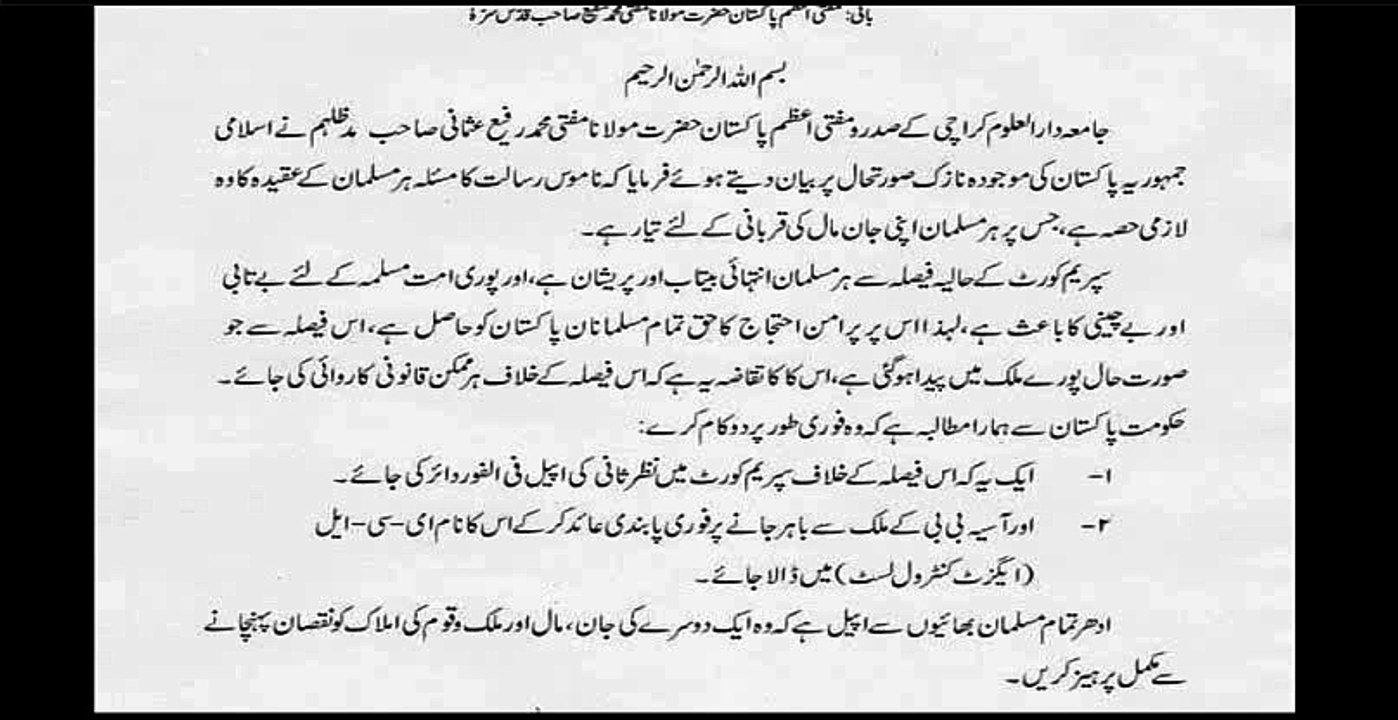 بانی: مفتی اعظم پاکستان حضرت مولانا مفتی محمد شفیع صاحب قدس سرہ
بسم اللہ الرحمٰن الرحیم
جامعہ دارالعلوم کراچی کے صدر و مفتی اعظم پاکستان حضرت مولانا مفتی محمد رفیع عثمانی صاحب مدظلہم نے اسلامی
جمہوریہ پاکستان کی موجودہ نازک صورتحال پر بیان دیتے ہوئے فرمایا کہ ناموس رسالت کا مسئلہ ہر مسلمان کے عقیدہ کا وہ
لازمی حصہ ہے، جس پر ہر مسلمان اپنی جان مال کی قربانی کے لئے تیار ہے۔
سپریم کورٹ کے حالیہ فیصلہ سے ہر مسلمان انتہائی بیتاب اور پریشان ہے، اور پوری امت مسلمہ کے لئے بے تابی
اور بے چینی کا باعث ہے، لہذا اس پر پر امن احتجاج کا حق تمام مسلمانان پاکستان کو حاصل ہے، اس فیصلہ سے جو
صورت حال پورے ملک میں پیدا ہوگئی ہے، اس کا کا تقاضہ یہ ہے کہ اس فیصلہ کے خلاف ہر ممکن قانونی کاروائی کی جائے۔
حکومت پاکستان سے ہمارا مطالبہ ہے کہ وہ فوری طور پر دو کام کرے:
۱- ایک یہ کہ اس فیصلہ کے خلاف سپریم کورٹ میں نظر ثانی کی اپیل فی الفور دائر کی جائے۔
۲- اور آسیہ بی بی کے ملک سے باہر جانے پر فوری پابندی عائد کر کے اس کا نام ای-سی-ایل
(ایگزٹ کنٹرول لسٹ) میں ڈالا جائے۔
ادھر تمام مسلمان بھائیوں سے اپیل ہے کہ وہ ایک دوسرے کی جان، مال اور ملک و قوم کی املاک کو نقصان پہنچانے
سے مکمل پرہیز کریں۔